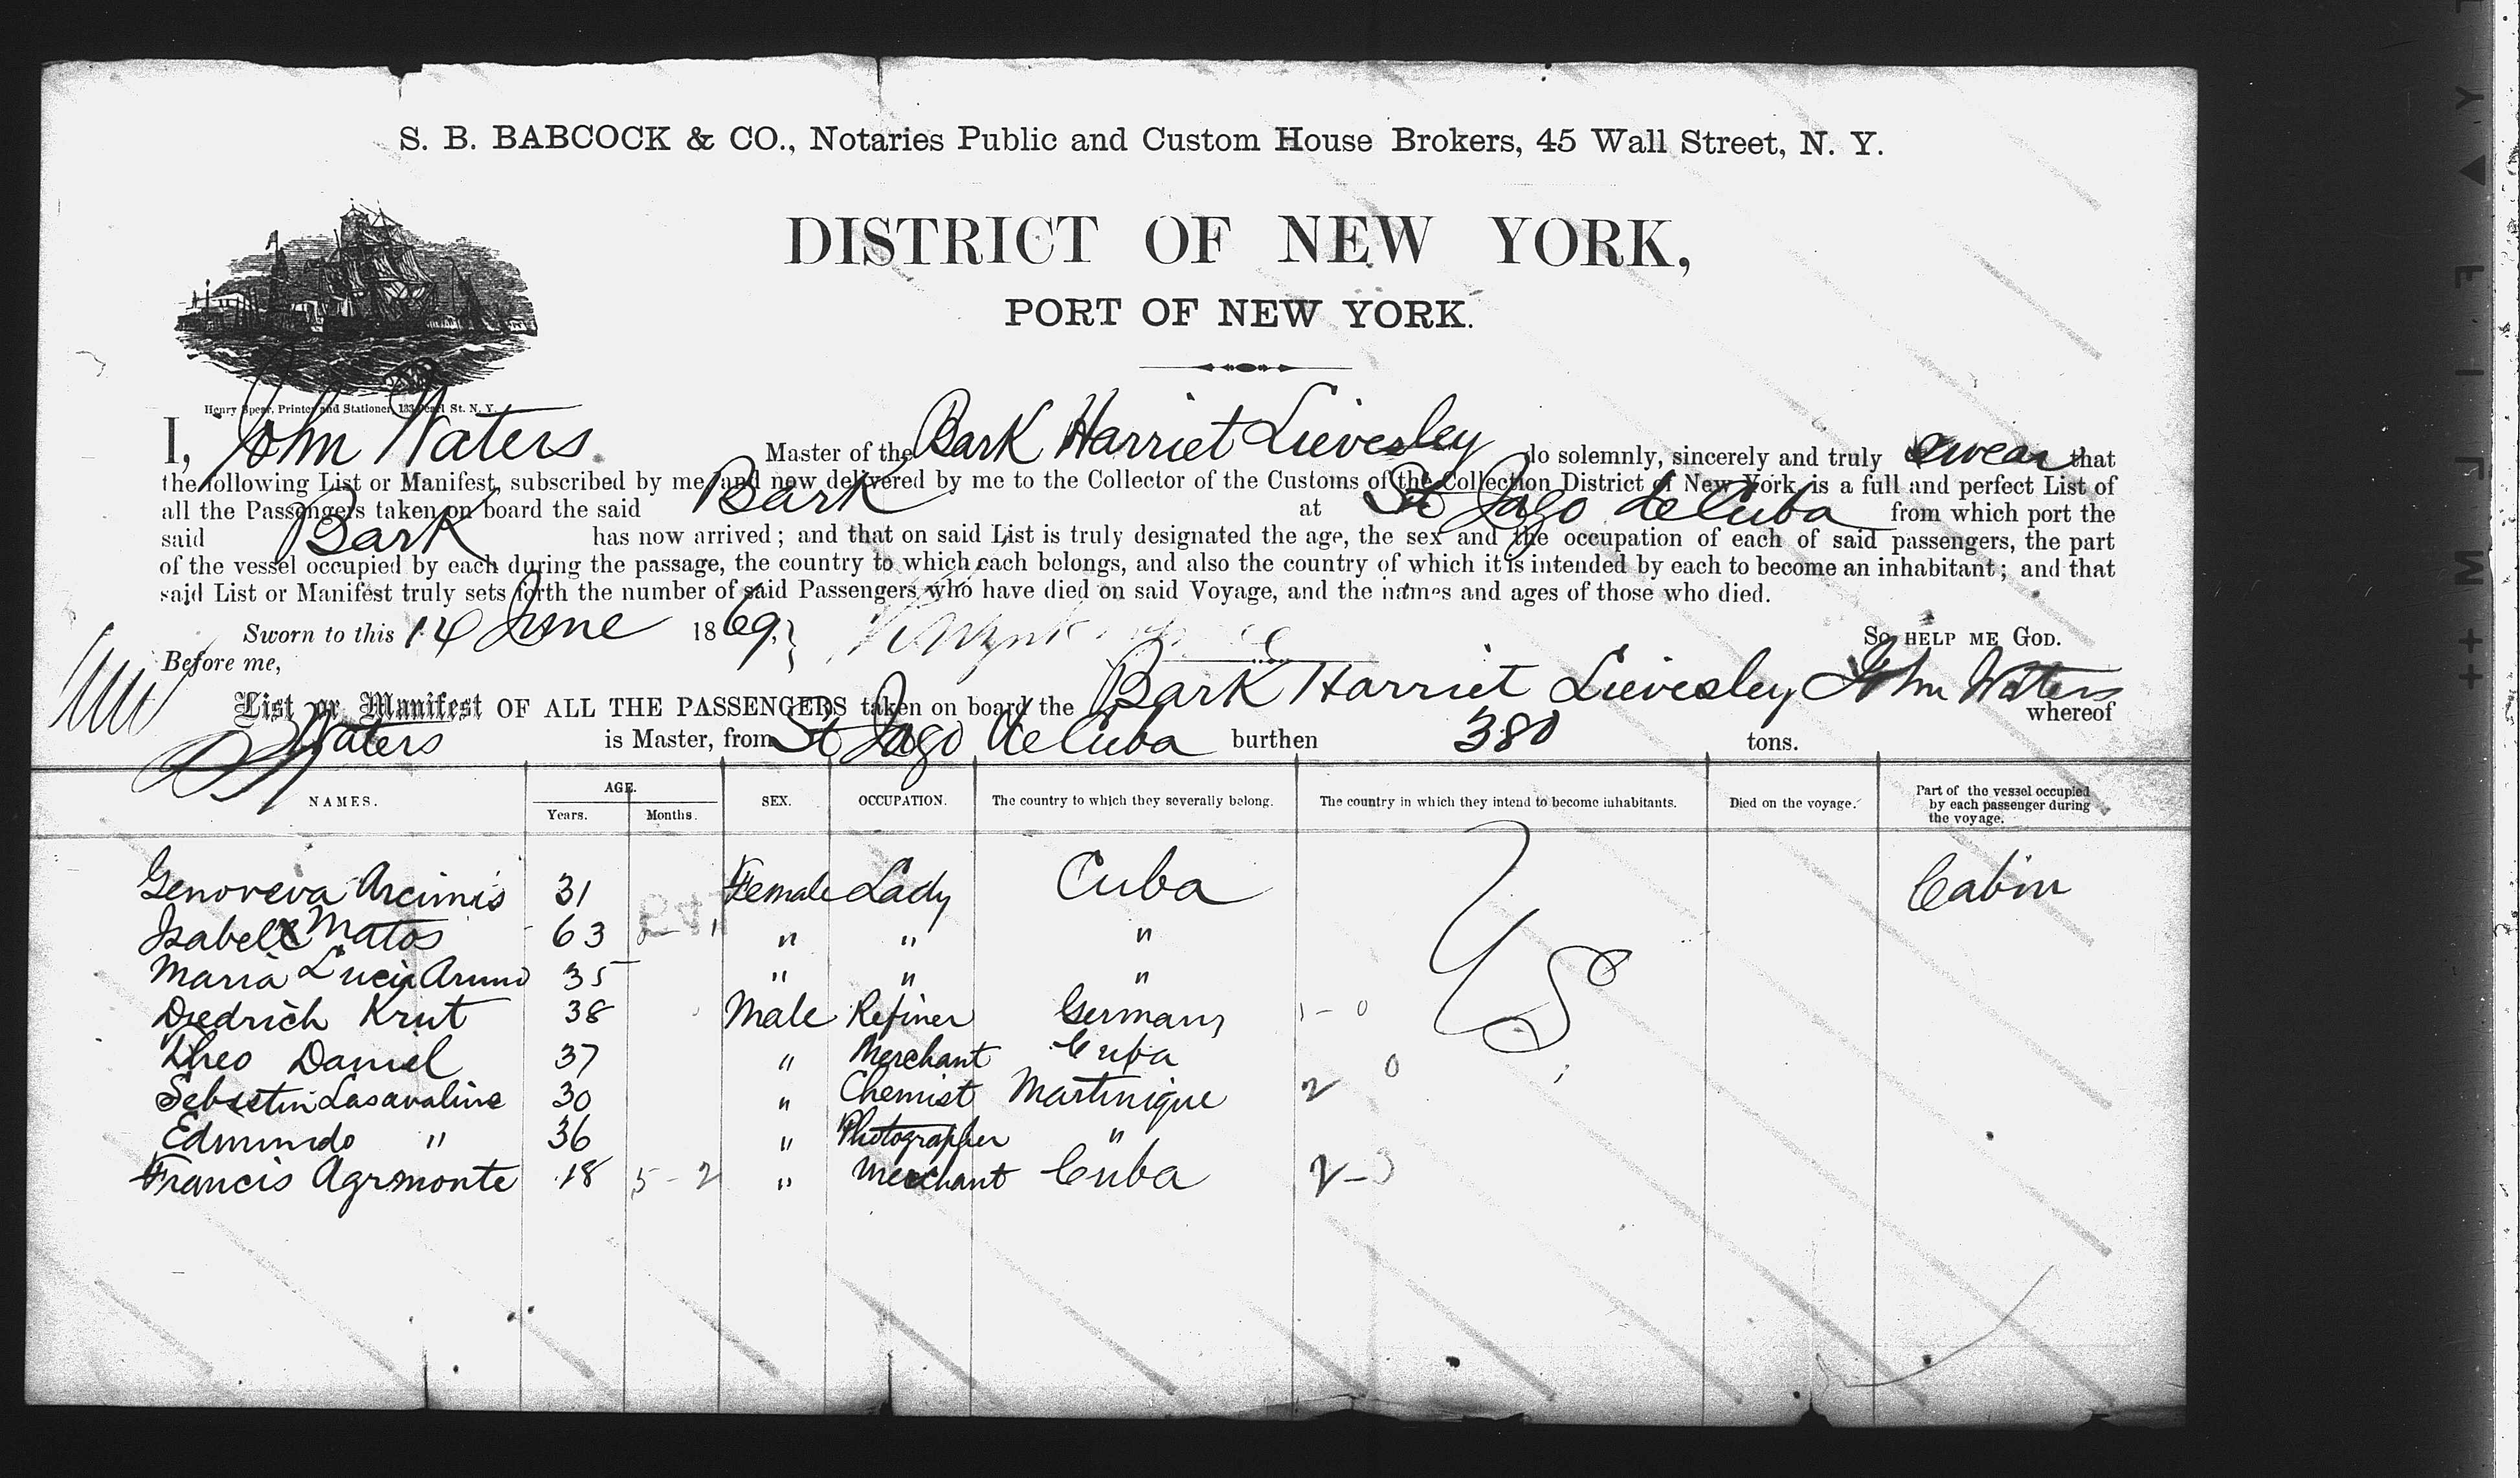 S. B. BABCOCK & CO., Notaries Public and Custom House Brokers, 45 Wall Street, N. Y.
DISTRICT OF NEW YORK,
PORT OF NEW YORK.
Henry Spear, Printer and Stationer, 133 Pearl St. N. Y.
I, John Waters Master of the Bark Harriet Lievesley do solemnly, sincerely and truly swear that
the following List or Manifest, subscribed by me, and now delivered by me to the Collector of the Customs of the Collection District of New York, is a full and perfect List of
all the Passengers taken on board the said Bark at St Jago de Cuba from which port the
said Bark has now arrived; and that on said List is truly designated the age, the sex and the occupation of each of said passengers, the part
of the vessel occupied by each during the passage, the country to which each belongs, and also the country of which it is intended by each to become an inhabitant; and that
said List or Manifest truly sets forth the number of said Passengers who have died on said Voyage, and the names and ages of those who died.
Sworn to this 14 June 1869. So HELP ME GOD.
Before me,
List or Manifest OF ALL THE PASSENGERS taken on board the Bark Harriet Lievesley John Waters whereof
Waters is Master, from St Jago de Cuba burthen 380 tons.
NAMES. AGE. Years. Months. SEX. OCCUPATION. The country to which they severally belong. The country in which they intend to become inhabitants. Died on the voyage. Part of the vessel occupied by each passenger during the voyage.
Genoveva Arcimis 31 Female Lady Cuba US Cabin
Isabel Matos 63 " " "
Maria Lucia 35 " " "
Diedrich Krut 38 Male Refiner Germany 1-0
Theo Daniel 37 " Merchant Cuba 0
Sebastin Lasavaline 30 " Chemist Martinique 2
Edmundo " 36 " Photographer "
Francis Agromonte 18 5-2 " Merchant Cuba 2-3